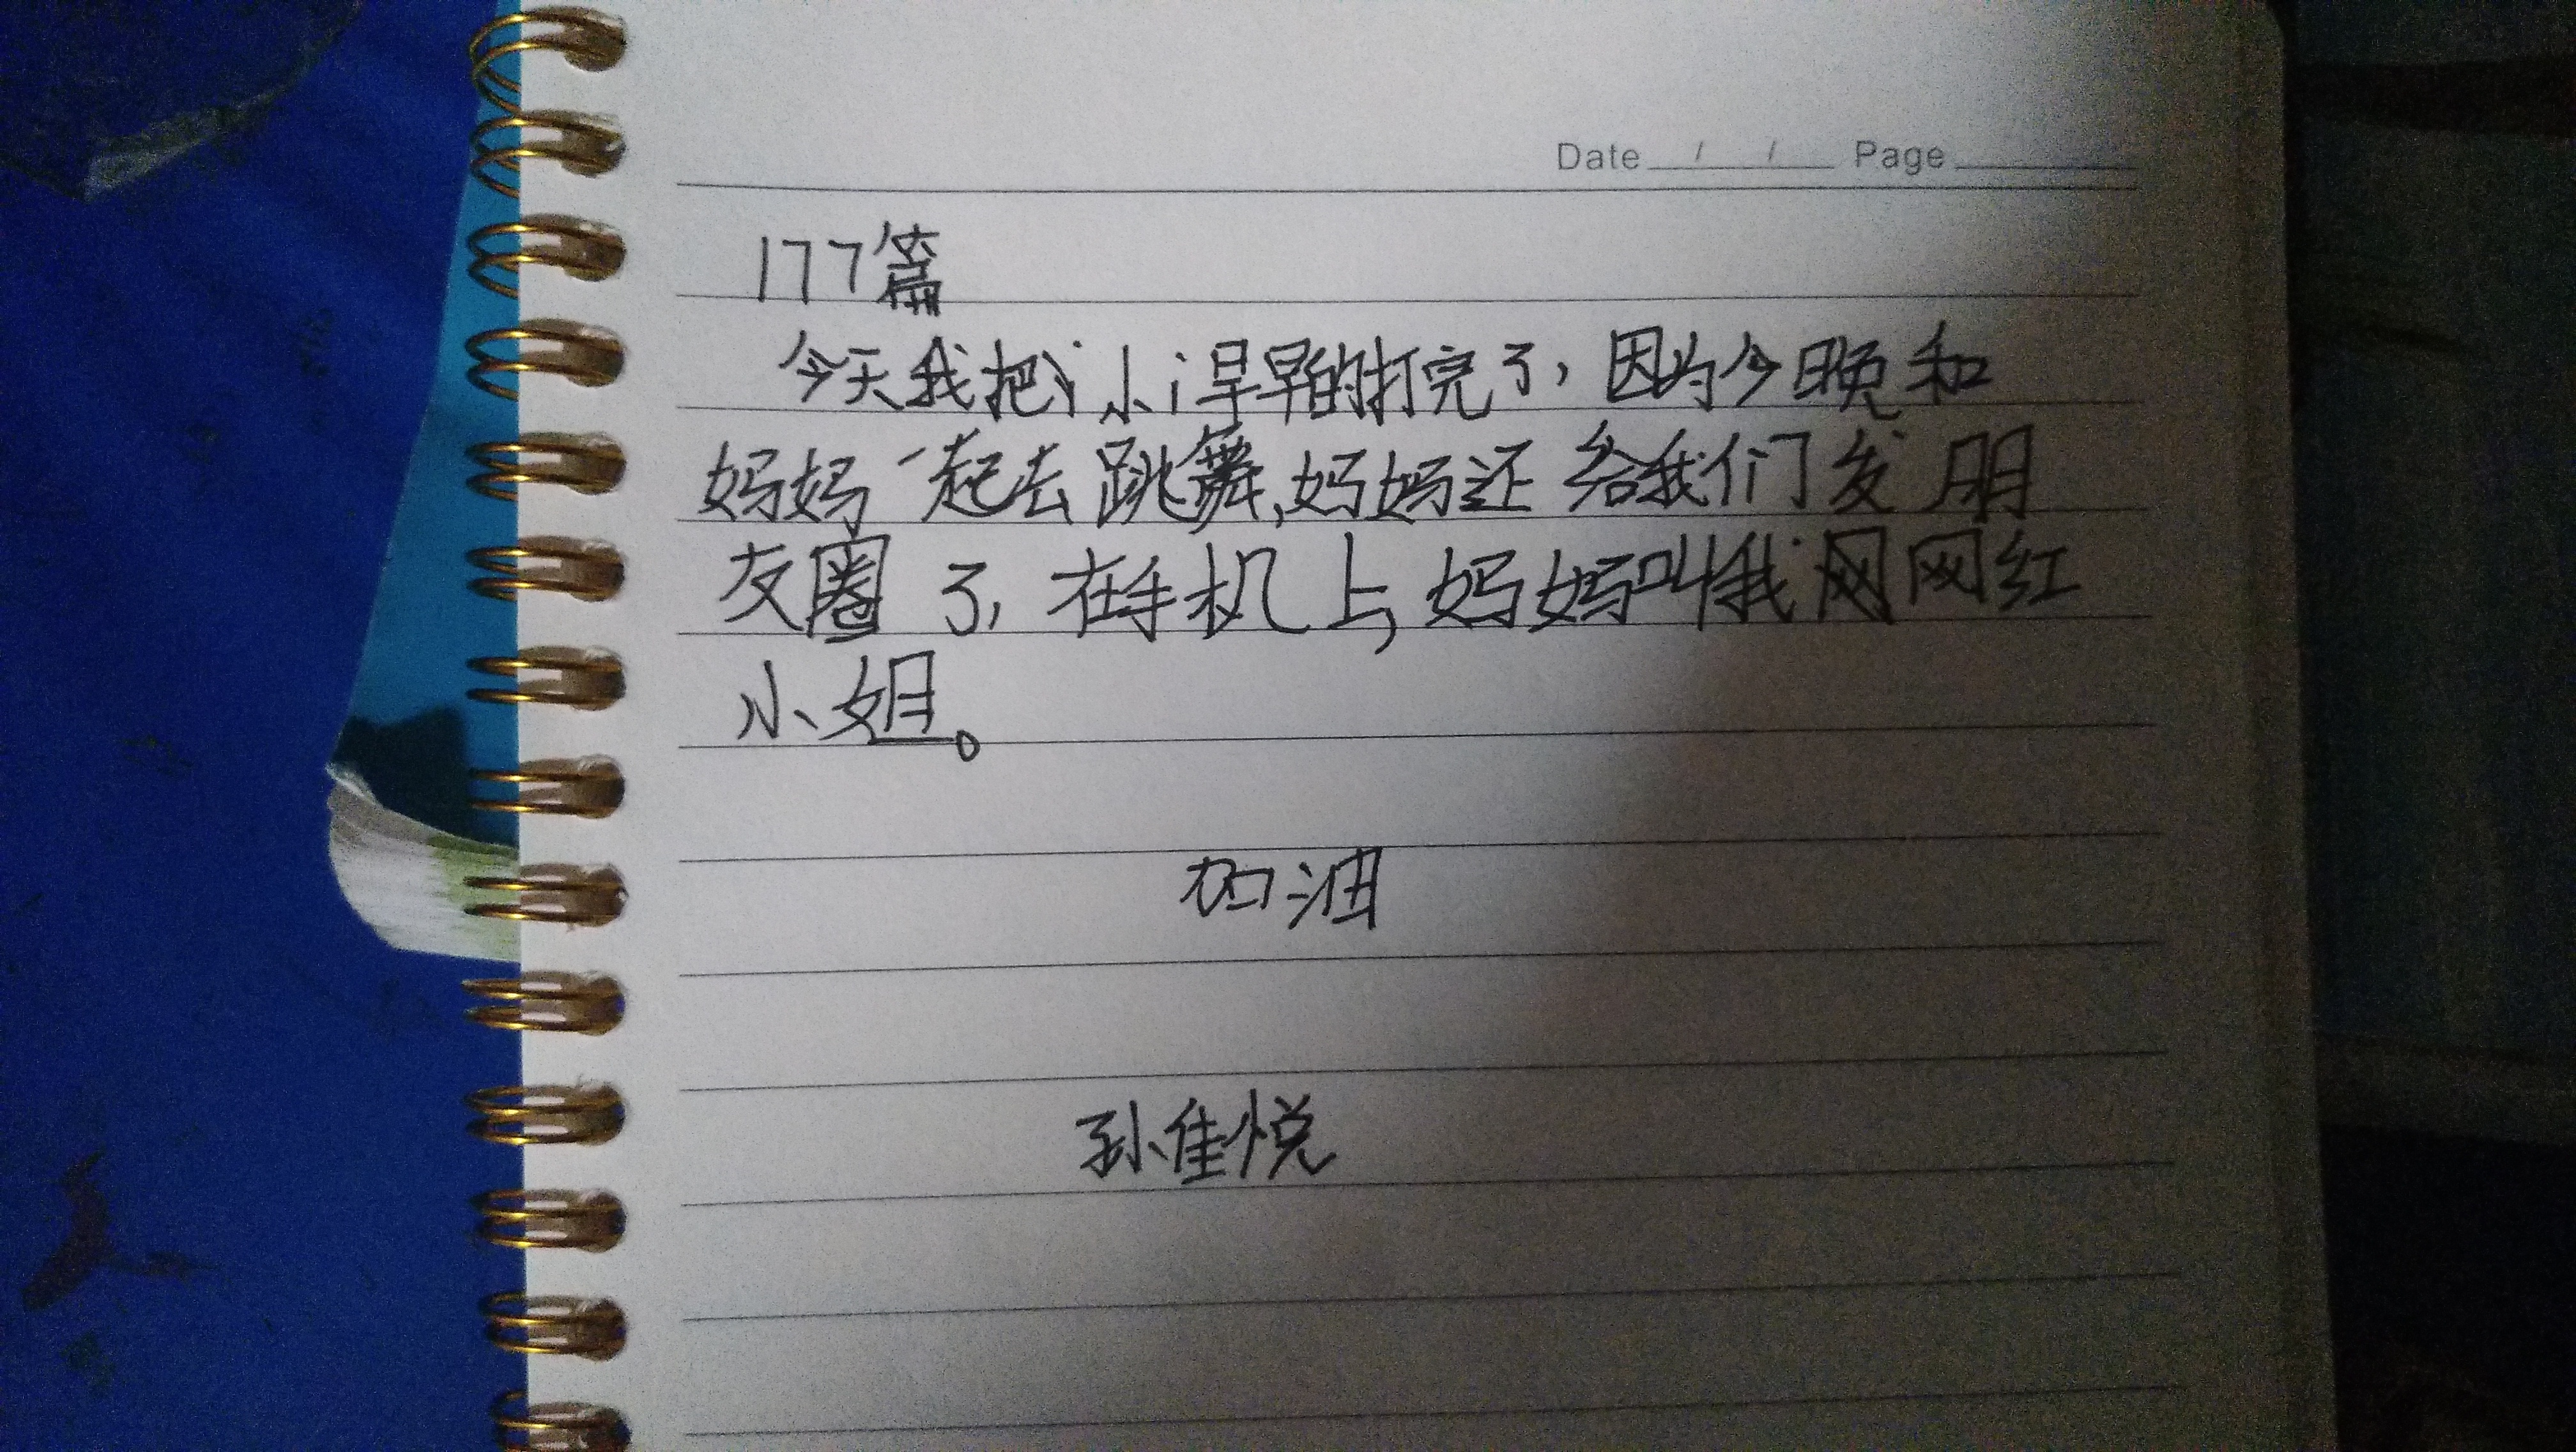 Date / / Page
177篇
今天我把讠小i早早的打完了，因为今晚和
妈妈一起去跳舞,妈妈还给我们发朋
友圈了，在手机上,妈妈叫我网红
小姐。
加油
孙佳悦